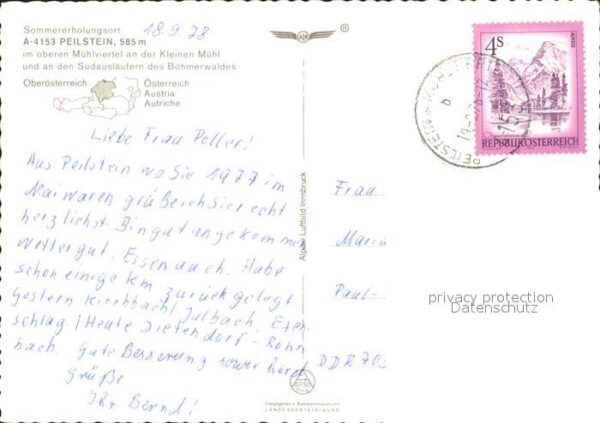 Sommererholungsort
A-4153 PEILSTEIN, 585 m
im oberen Mühlviertel an der Kleinen Mühl
und an den Südausläufern des Böhmerwaldes
Oberösterreich
Österreich
Austria
Autriche
18.9.78
Liebe Frau Poller!
Aus Peilstein wo Sie 1977 im
Mai waren grüße ich Sie recht
herzlichst. Bin gut angekommen
Wetter gut. Essen auch. Habe
schon einige Km zurückgelegt.
Gestern Kirchbach, Julbach, Eten-
schlag! Heute Dietendorf-Rohr
bach. Gute Besserung sowie herzl
Grüße
Ihr Bernd!
Alpine Luftbild Innsbruck
4 S
REPUBLIK ÖSTERREICH
PEILSTEIN
Frau
Maria
Paul-
DDR 703
privacy protection
Datenschutz
LANDESVERTEIDIGUNG